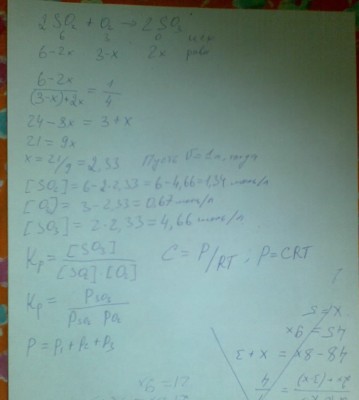 2SO₂ + O₂ → 2SO₃
6 3 0 исх
6-2x 3-x 2x равн
6-2x / (3-x)+2x = 1/4
24-8x = 3+x
21 = 9x
x = 21/9 = 2,33 Пусть V=1л, тогда
[SO₂] = 6-2·2,33 = 6-4,66 = 1,34 моль/л
[O₂] = 3-2,33 = 0,67 моль/л
[SO₃] = 2·2,33 = 4,66 моль/л
Kp = [SO₃] / [SO₂][O₂] C = P/RT, P=CRT
Kp = P SO₃ / P SO₂ P O₂
P = P₁ + P₂ + P₃
x = 5
45 = 9x
48-8x = x+3